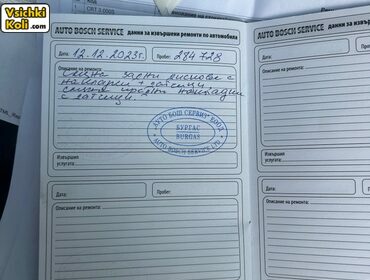 Vsichki
Koli.com
CRT 3.000
AUTO BOSCH SERVICE данни за извършени ремонти по автомобила
Дата: 12.12.2023г. Пробег: 284 728
Описание на ремонта:
Смяна задни дискове с
накладки + датчици.
смяна предни накладки
с датчици.
"АУТО БОШ СЕРВИЗ" ЕООД
БУРГАС
BURGAS
AUTO BOSCH SERVICE LTD.
Извършил
услугата:
Дата: Пробег:
Описание на ремонта:
AUTO BOSCH SERVICE данни за извършени
Дата:
Описание на ремонта:
Извършил
услугата:
Дата:
Описание на ремонта: